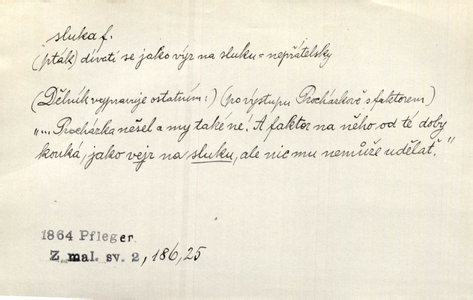 sluka f.
(pták) dívati se jako výr na sluku = nepřátelsky
(Dělník vypravuje ostatním:) (po výstupu Procházkově s faktorem)
"... Procházka nešel a my také né. A faktor na něho od té doby
kouká, jako vejr na sluku, ale nic mu nemůže udělat."
1864 Pfleger
Z mal. sv. 2, 186, 25